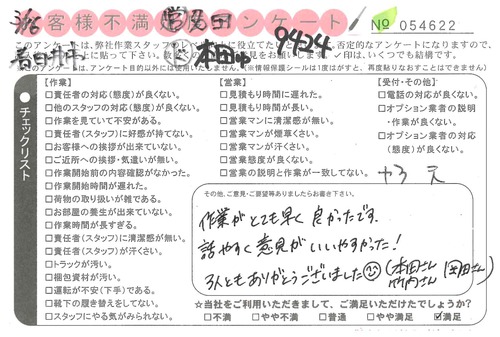 お客様不満足アンケート
No 054622
3/16
春日井市
本田
9424
このアンケートは、弊社作業スタッフのレベル
に役立てたい
否定的なアンケートになりますので、
お願いします。✓印は、いくつでも結構です。
アンケート目的以外には使用いたしません。(※情報保護シールは1度はがすと、再度貼りなおすことはできません)
チェックリスト
【作業】
□責任者の対応(態度)が良くない。
□他のスタッフの対応(態度)が良くない。
□作業を見ていて不安がある。
□責任者(スタッフ)に好感が持てない。
□お客様への挨拶が出来ていない。
□ご近所への挨拶・気遣いが無い。
□作業開始前の内容確認がなかった。
□作業開始時間が遅れた。
□荷物の取り扱いが雑である。
□お部屋の養生が出来ていない。
□作業時間が長すぎる。
□責任者(スタッフ)に清潔感が無い。
□責任者(スタッフ)が汗くさい。
□トラックが汚い。
□梱包資材が汚い。
□運転が不安(下手)である。
□靴下の履き替えをしてない。
□スタッフにやる気がみられない。
【営業】
□見積もり時間に遅れた。
□見積もり時間が長い。
□営業マンに清潔感が無い。
□営業マンが煙草くさい。
□営業マンが汗くさい。
□営業態度が良くない。
□営業の説明と作業が一致してない。
【受付・その他】
□電話の対応が良くない。
□オプション業者の説明
・作業が良くない。
□オプション業者の対応
(態度)が良くない。
その他、ご意見・ご要望等ありましたらお書き下さい。
作業がとても早く良かったです。
話やすく意見がいいやすかった!
3人ともありがとうございました
(本田さん
竹内さん
岡田さん)
☆当社をご利用いただきまして、ご満足いただけたでしょうか?
□不満 □やや不満 □普通 □やや満足 ☑満足